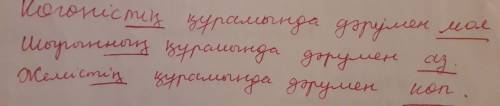 Көгөністің құрамында дәрумен мол
Шырынның құрамында дәрумен аз.
Жемістің құрамында дәрумен көп.